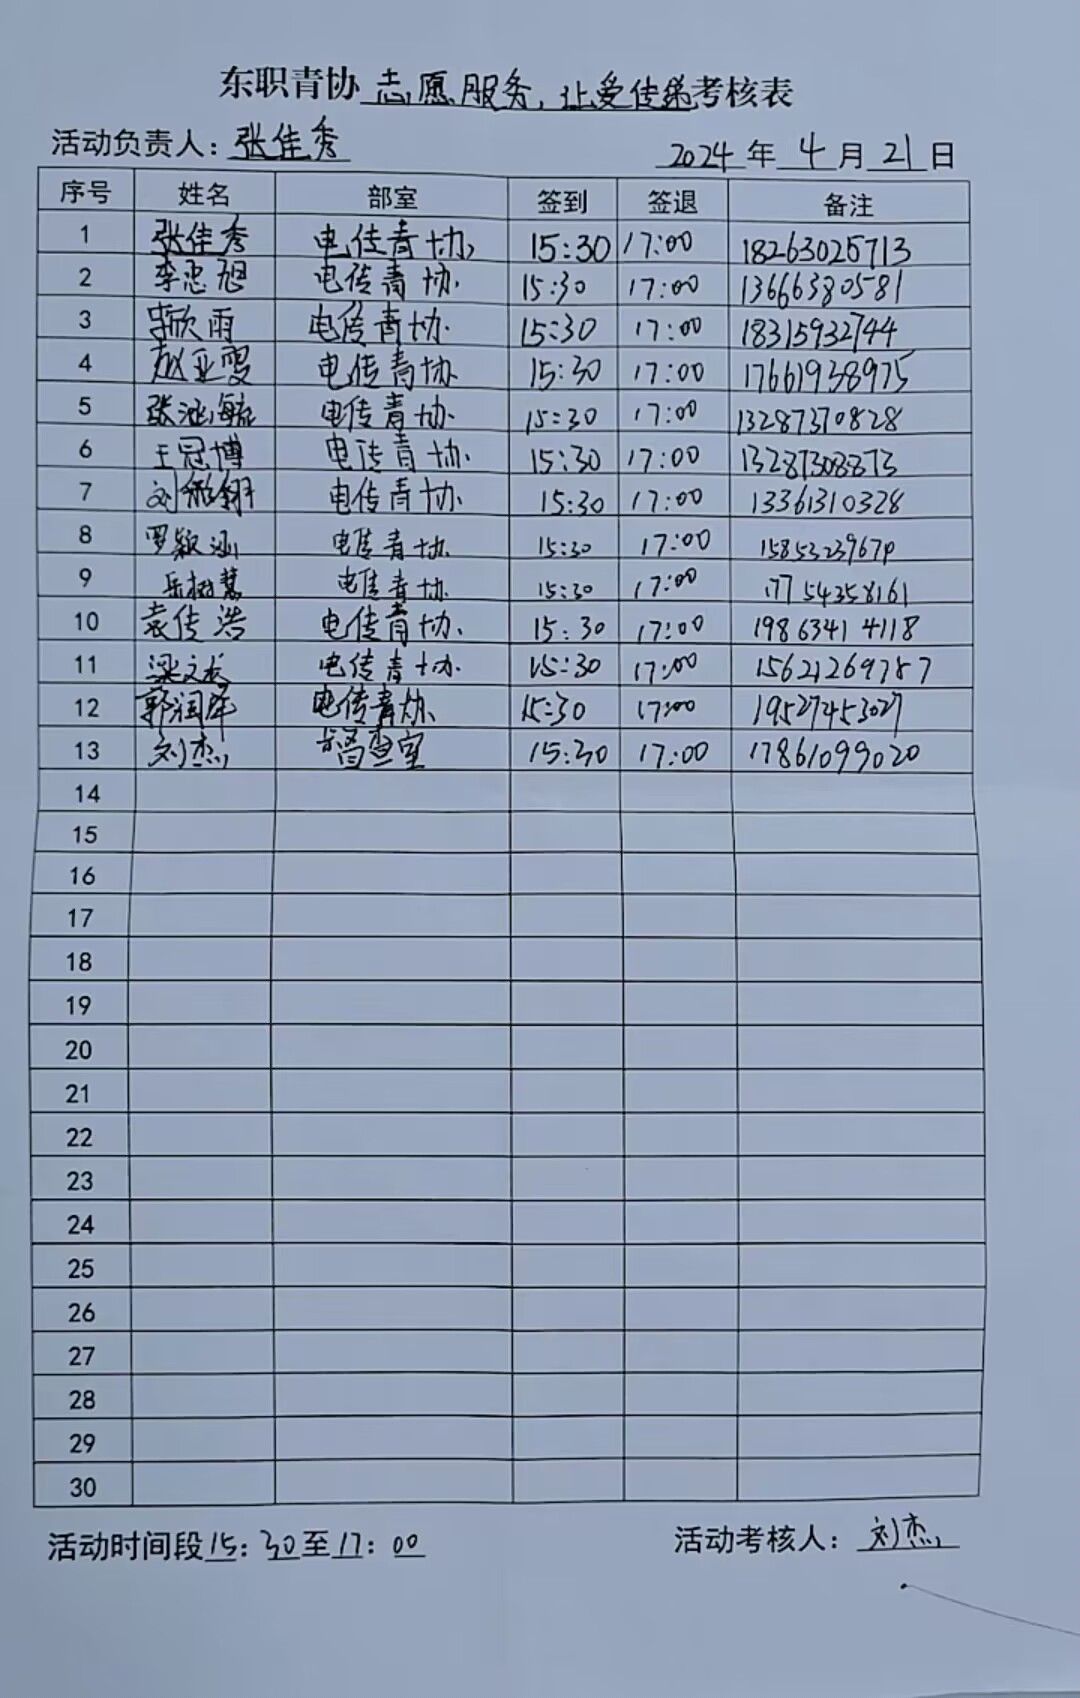 东职青协志愿服务,让爱传递考核表
活动负责人：张佳秀 2024年4月21日
序号 姓名 部室 签到 签退 备注
1 张佳秀 电传青协 15:30 17:00 18263025713
2 李忠旭 电传青协 15:30 17:00 13666380581
3 李欣雨 电传青协 15:30 17:00 18315932744
4 赵亚雯 电传青协 15:30 17:00 17661938975
5 张涵毓 电传青协 15:30 17:00 13287370828
6 王冠博 电传青协 15:30 17:00 13287308873
7 电传青协 15:30 17:00 13361310328
8 罗颖涵 电传青协 15:30 17:00
9 电传青协 15:30 17:00 17754358161
10 袁传浩 电传青协 15:30 17:00 19863414118
11 梁文龙 电传青协 15:30 17:00 15621269787
12 郭润泽 电传青协 15:30 17:00 19527453027
13 刘杰 督查室 15:30 17:00 17861099020
14
15
16
17
18
19
20
21
22
23
24
25
26
27
28
29
30
活动时间段15:30至17:00 活动考核人：刘杰